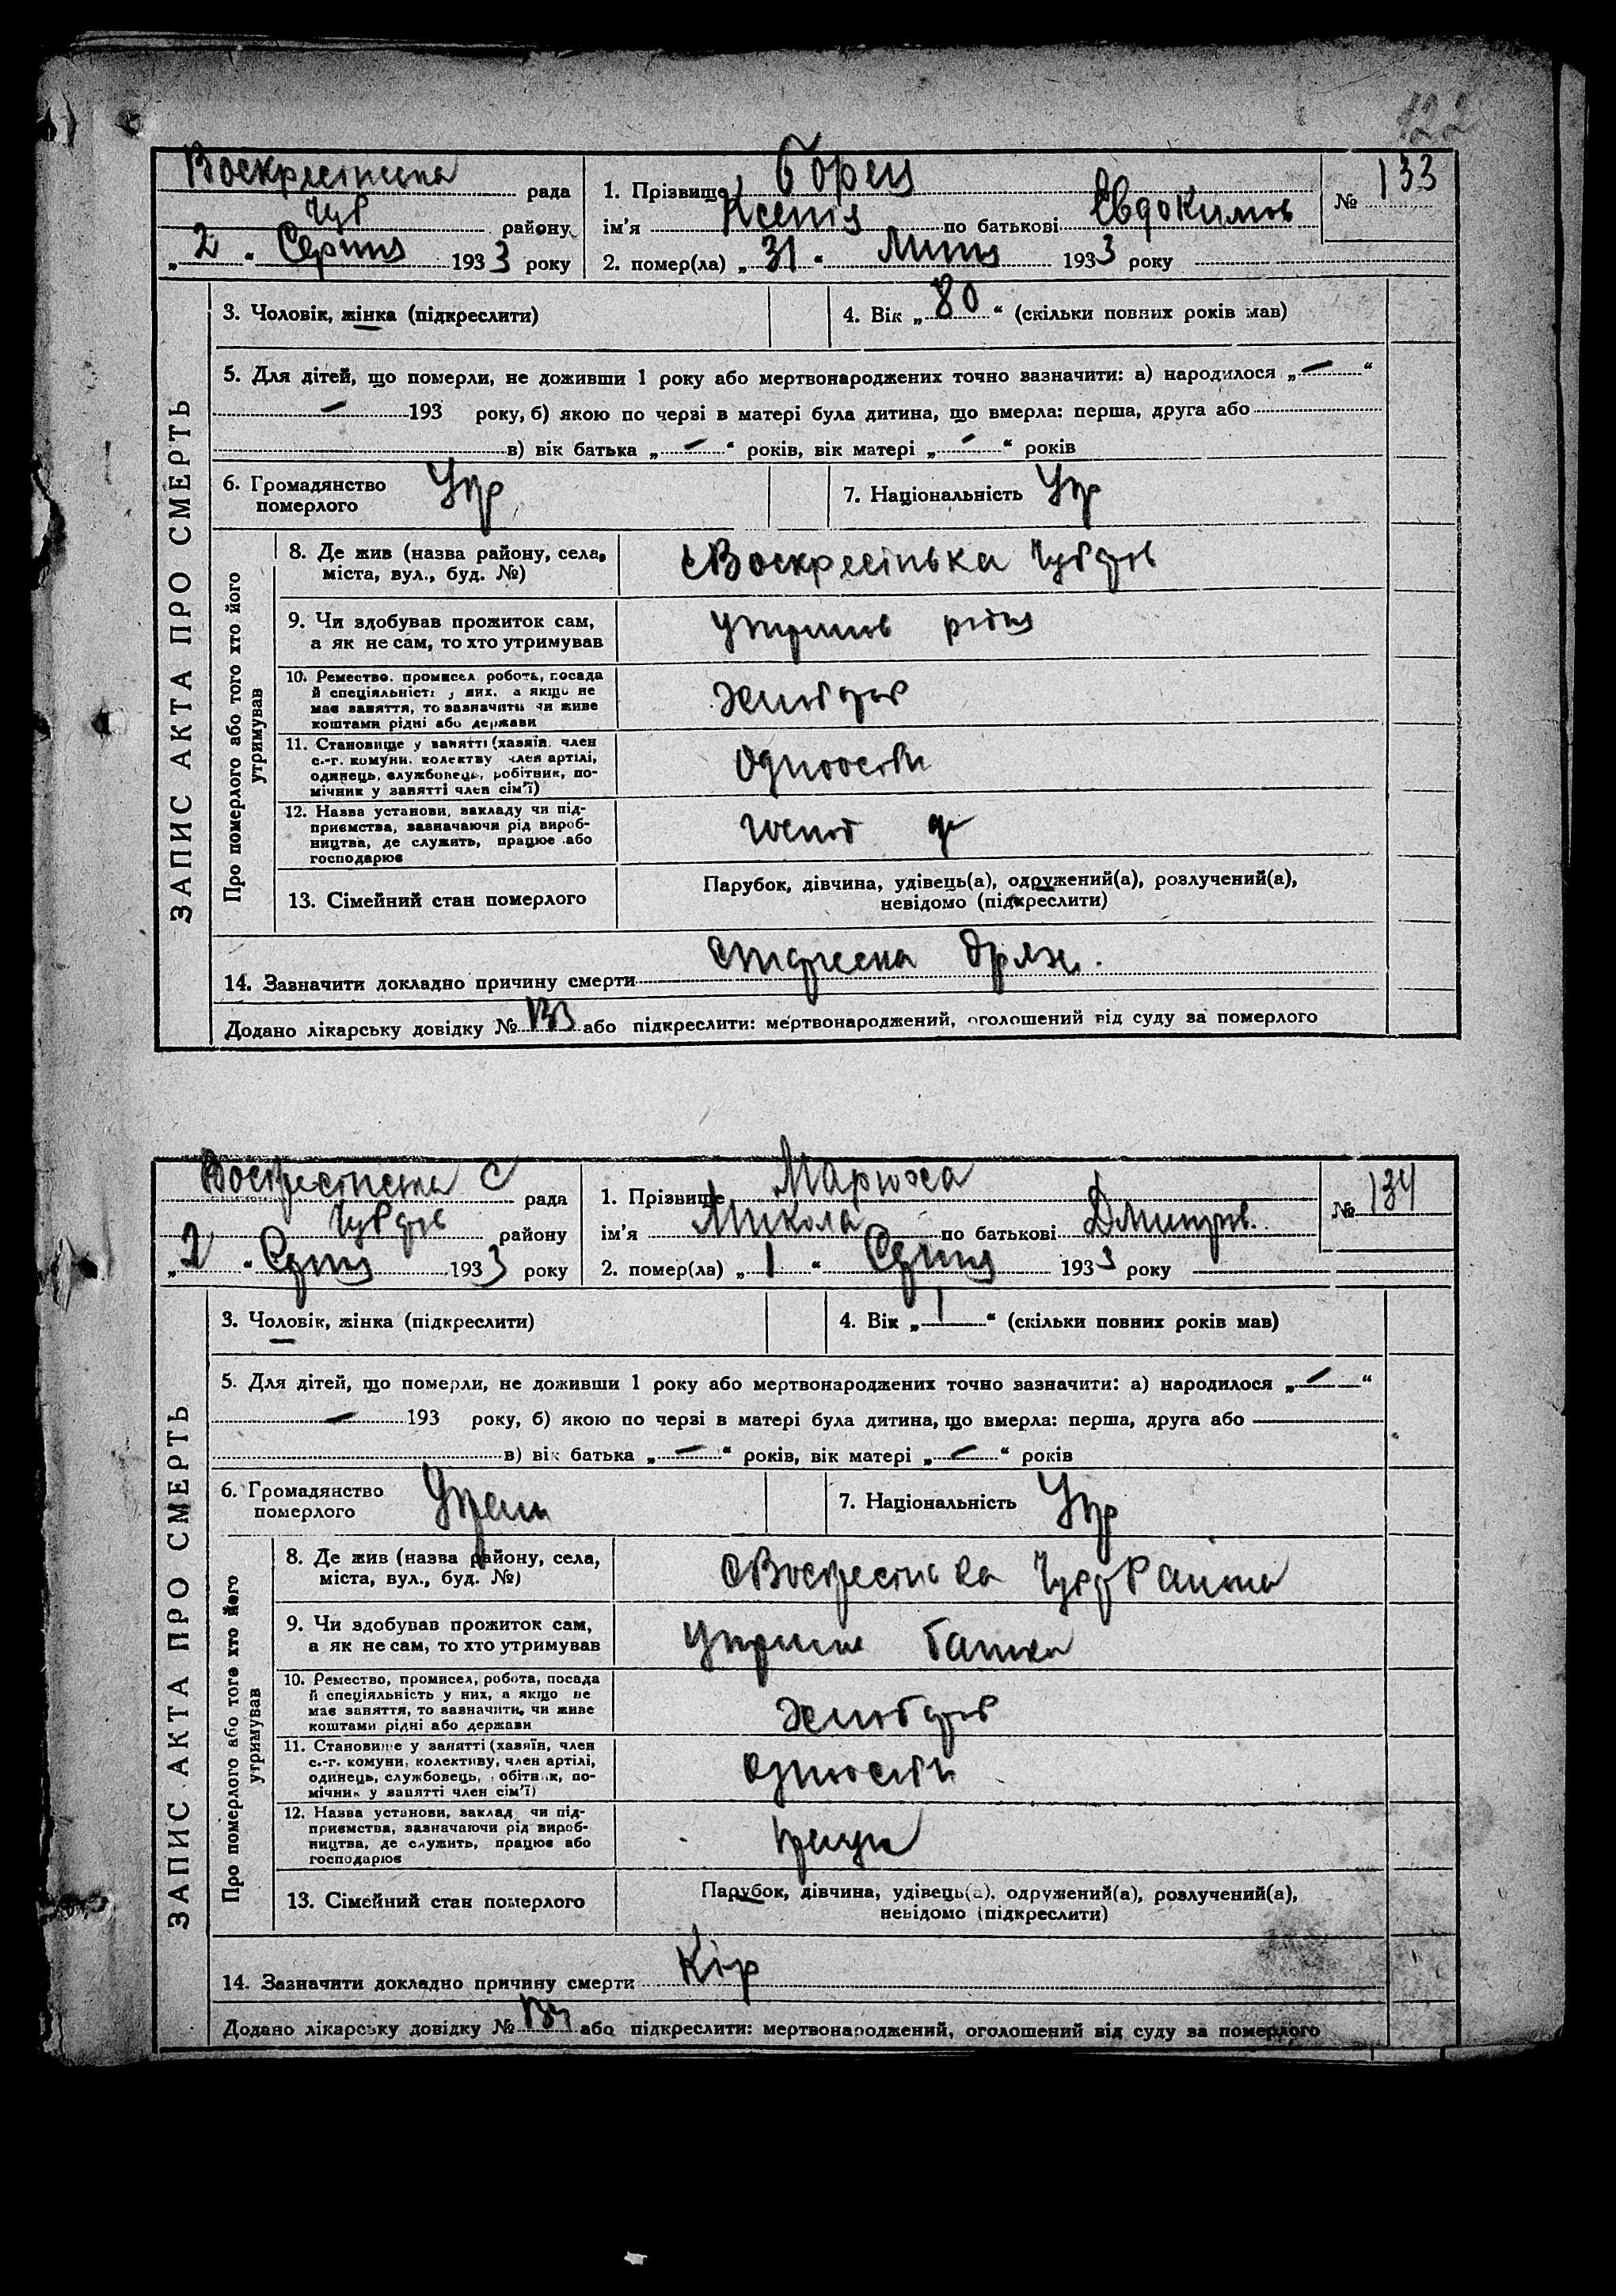 122
Воскресінська рада
Чуб району
„2“ Серпня 1933 року
1. Прізвище Борец
ім'я Ксенія по батькові Євдокимов
№ 133
2. помер(ла) „31“ Липня 1933 року
ЗАПИС АКТА ПРО СМЕРТЬ
3. Чоловік, жінка (підкреслити)
4. Вік „80“ (скільки повних років мав)
5. Для дітей, що померли, не доживши 1 року або мертвонароджених точно зазначити: а) народилося „—“
— 193 року, б) якою по черзі в матері була дитина, що вмерла: перша, друга або
в) вік батька „—“ років, вік матері „—“ років
6. Громадянство померлого Укр
7. Національність Укр
Про померлого або того хто його утримував
8. Де жив (назва району, села,
міста, вул., буд. №)
с Воскресінька
9. Чи здобував прожиток сам,
а як не сам, то хто утримував
10. Ремество, промисел, робота, посада
й спеціяльність у них, а якщо не
має заняття, то зазначити чи живе
коштами рідні або держави
Хлібороб
11. Становище у занятті (хазяїн, член
с.-г. комуни, колективу, член артілі,
одинець, службовець, робітник, по-
мічник у занятті член сім'ї)
Одноосібн
12. Назва установи, закладу чи під-
приємства, зазначаючи рід вироб-
ництва, де служить, працює або
господарює
13. Сімейний стан померлого
Парубок, дівчина, удівець(а), одружений(а), розлучений(а),
невідомо (підкреслити)
14. Зазначити докладно причину смерти
Додано лікарську довідку № 133 або підкреслити: мертвонароджений, оголошений від суду за померлого
Воскресінська С рада
району
„2“ Серпня 1933 року
1. Прізвище Марюха
ім'я Микола по батькові Дмитров.
№ 134
2. помер(ла) „1“ Серпня 1933 року
ЗАПИС АКТА ПРО СМЕРТЬ
3. Чоловік, жінка (підкреслити)
4. Вік „1“ (скільки повних років мав)
5. Для дітей, що померли, не доживши 1 року або мертвонароджених точно зазначити: а) народилося „—“
— 193 року, б) якою по черзі в матері була дитина, що вмерла: перша, друга або
в) вік батька „—“ років, вік матері „—“ років
6. Громадянство померлого
7. Національність Укр
Про померлого або того хто його утримував
8. Де жив (назва району, села,
міста, вул., буд. №)
с Воскресінька
9. Чи здобував прожиток сам,
а як не сам, то хто утримував
батька
10. Ремество, промисел, робота, посада
й спеціяльність у них, а якщо не
має заняття, то зазначити, чи живе
коштами рідні або держави
Хлібороб
11. Становище у занятті (хазяїн, член
с.-г. комуни, колективу, член артілі,
одинець, службовець, робітник, по-
мічник у занятті член сім'ї)
Одноосібн
12. Назва установи, заклад чи під-
приємства, зазначаючи рід вироб-
ництва, де служить, працює або
господарює
13. Сімейний стан померлого
Парубок, дівчина, удівець(а), одружений(а), розлучений(а),
невідомо (підкреслити)
14. Зазначити докладно причину смерти Кір
Додано лікарську довідку № 134 або підкреслити: мертвонароджений, оголошений від суду за померлого